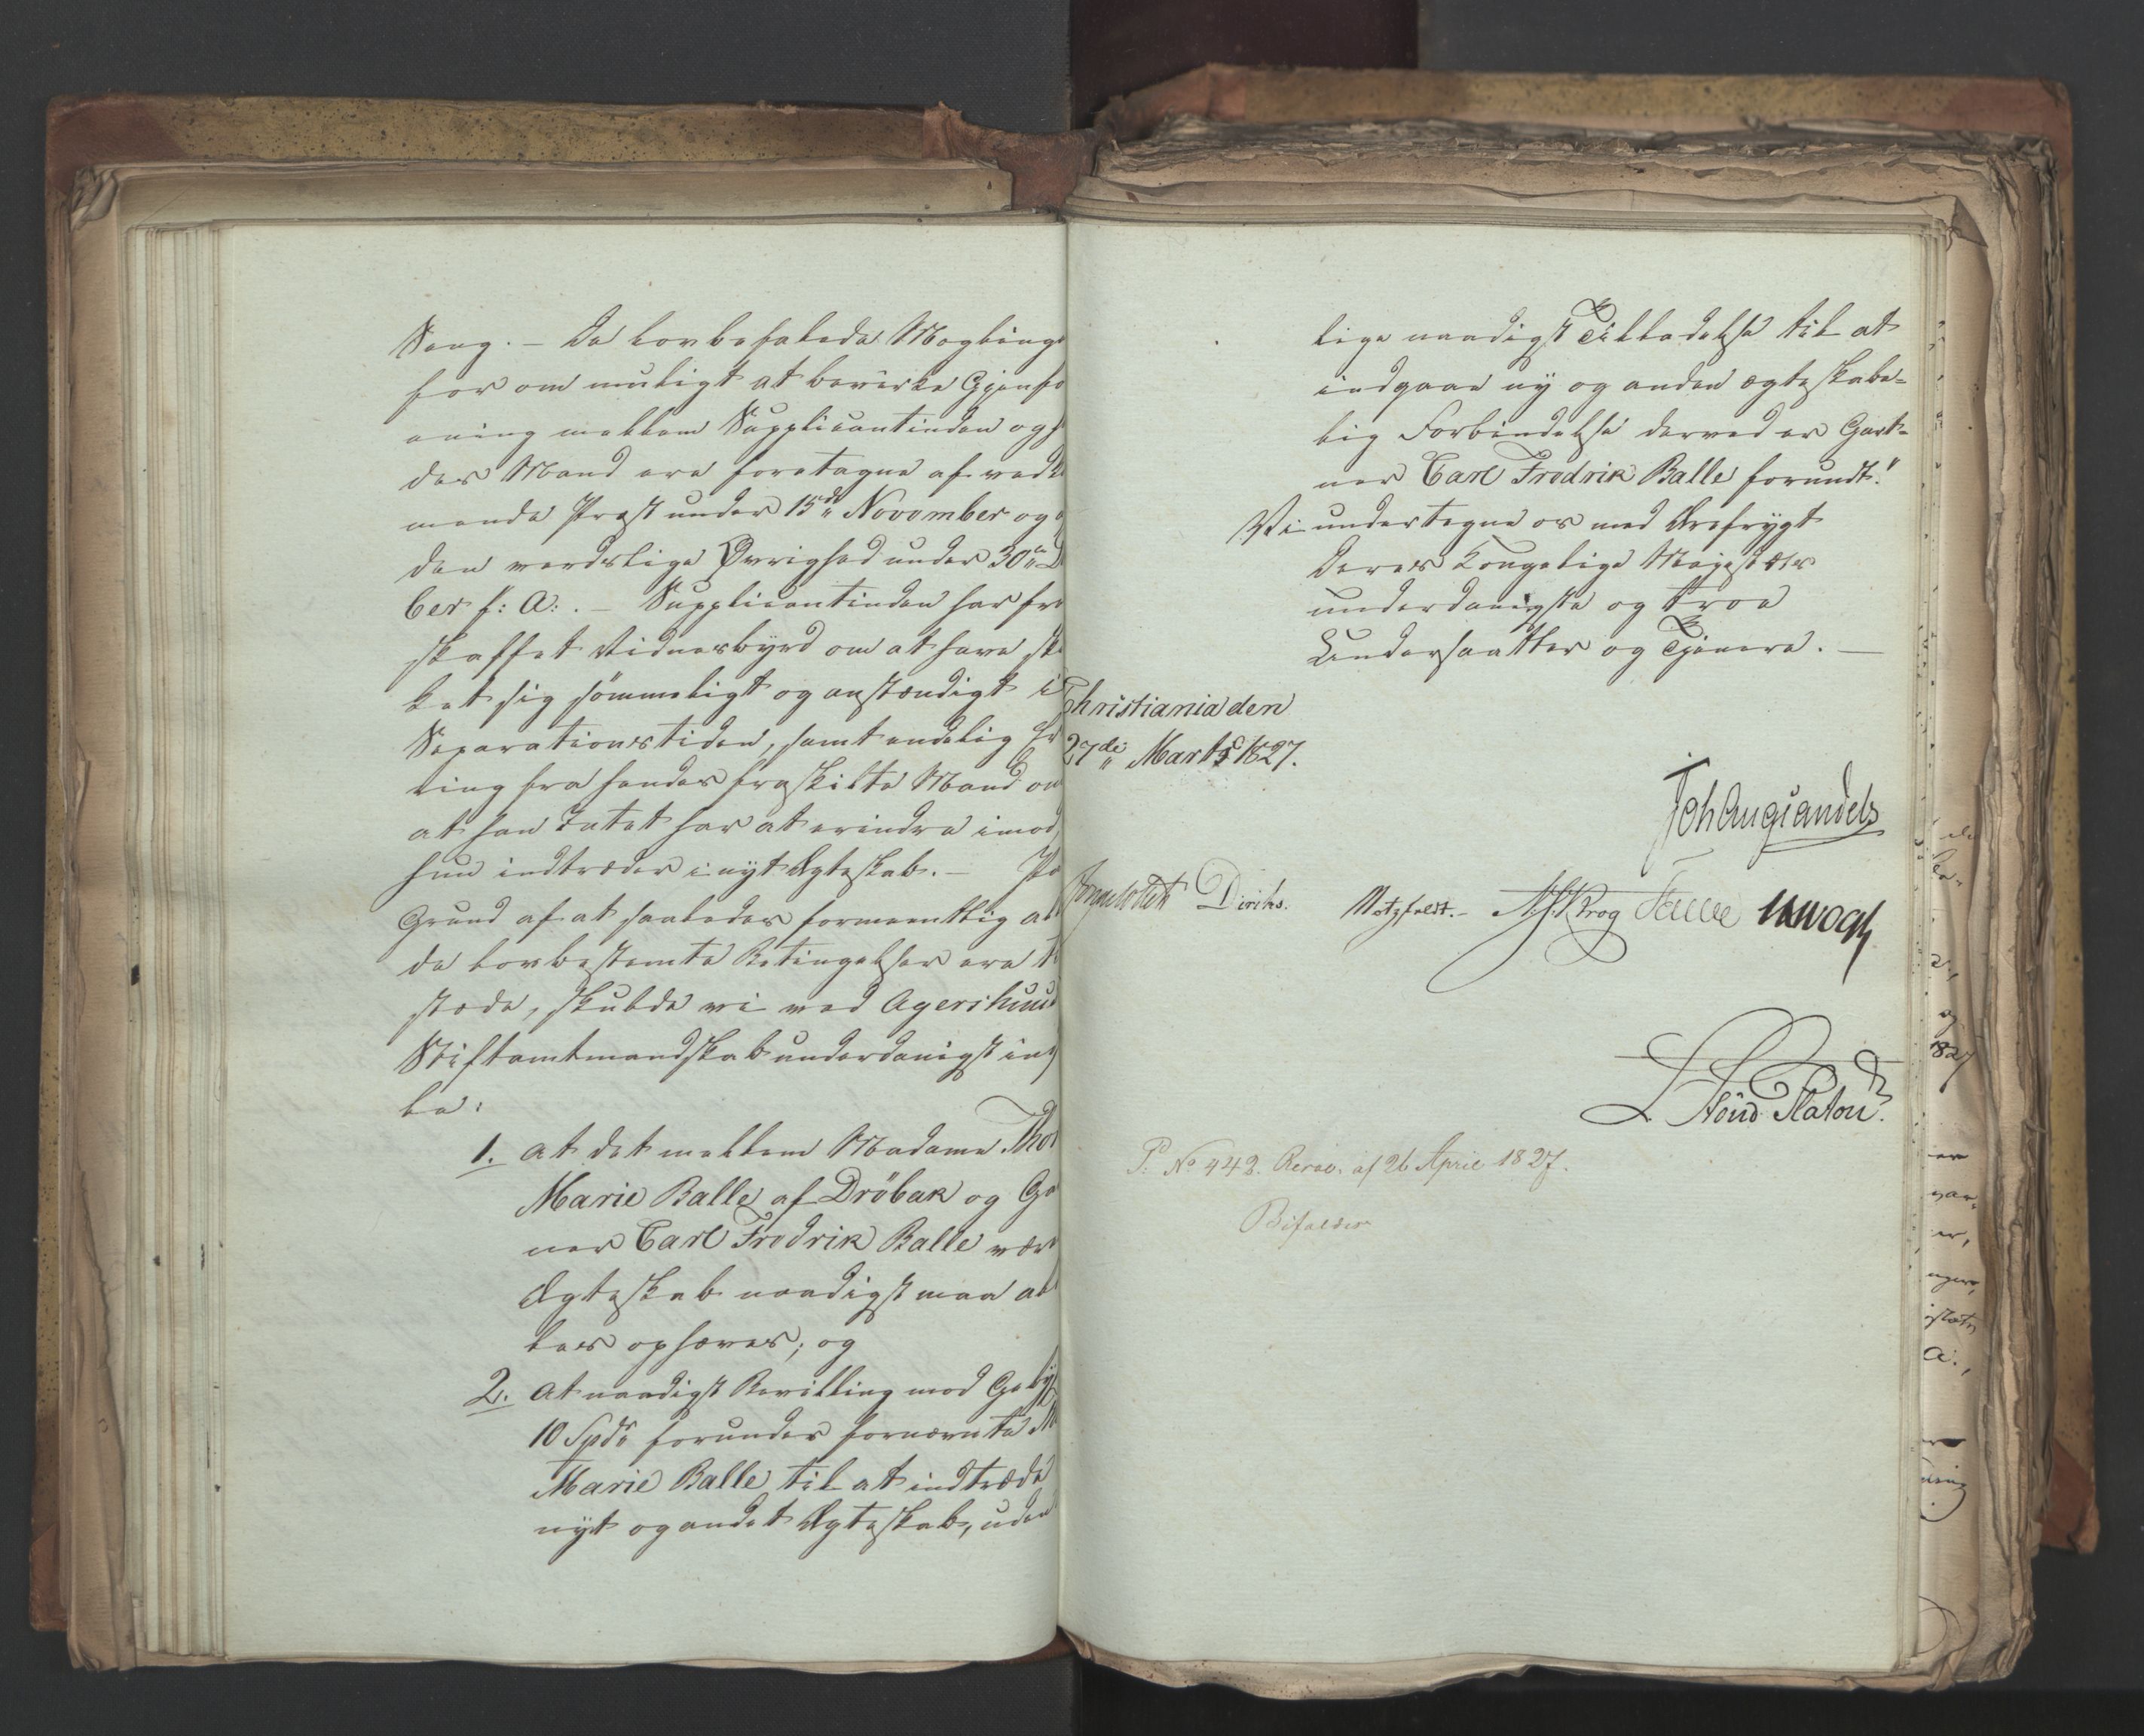 Seng. – De lovbefalede Mæglinge
for om muligt at bevirke Gjenfo
ening mellem Supplicantinden og
des Mand ere foretagne af vedk
mende Præst under 15de November og
den verdslige Øvrighed under 30te
ber f: A: . – Supplicantinden har fre
skaffet Vidnesbyrd om at have
ket sig sømmeligt og anstændigt i
Separationstiden, samt endelig
ring fra hendes fraskilte Mand om
at han Intet har at erindre imod
hun indtræder i nyt Ægteskab. – Pa
Grund af at saaledes formeentlig al
de lovbestemte Betingelser ere ti
stede, skulde vi med Agershuus
Stiftamtmandskab underdanigst ind
le:
1. at det mellem Madame Thor
Marie Balle af Drøbak og Ga
ner Carl Fredrik Balle vær
Ægteskab naadigst maa al
les ophæves; og
2. at naadigst Bevilling mod Geby
10 Spd forundes fornævnte M
Marie Balle til at indtræde
nyt og andet Ægteskab, uden
lige naadigst Tilladelse til at
indgaae ny og anden ægteskabe=
lig Forbindelse derved er Gart=
ner Carl Fredrik Balle forundt."
Vi undertegne os med Ærefrygt
Deres Kongelige Majestæts
underdanigste og troe
Undersaatter og Tjenere. –
Christiania den
27de Marts 1827.
Joh Aug Sandels
Jonas Collett Diriks. Motzfeldt. – Krog Fasting JHVogt
L Stoud Platou
P: No 442. Resol. af 26 April 1827.
Bifaldes